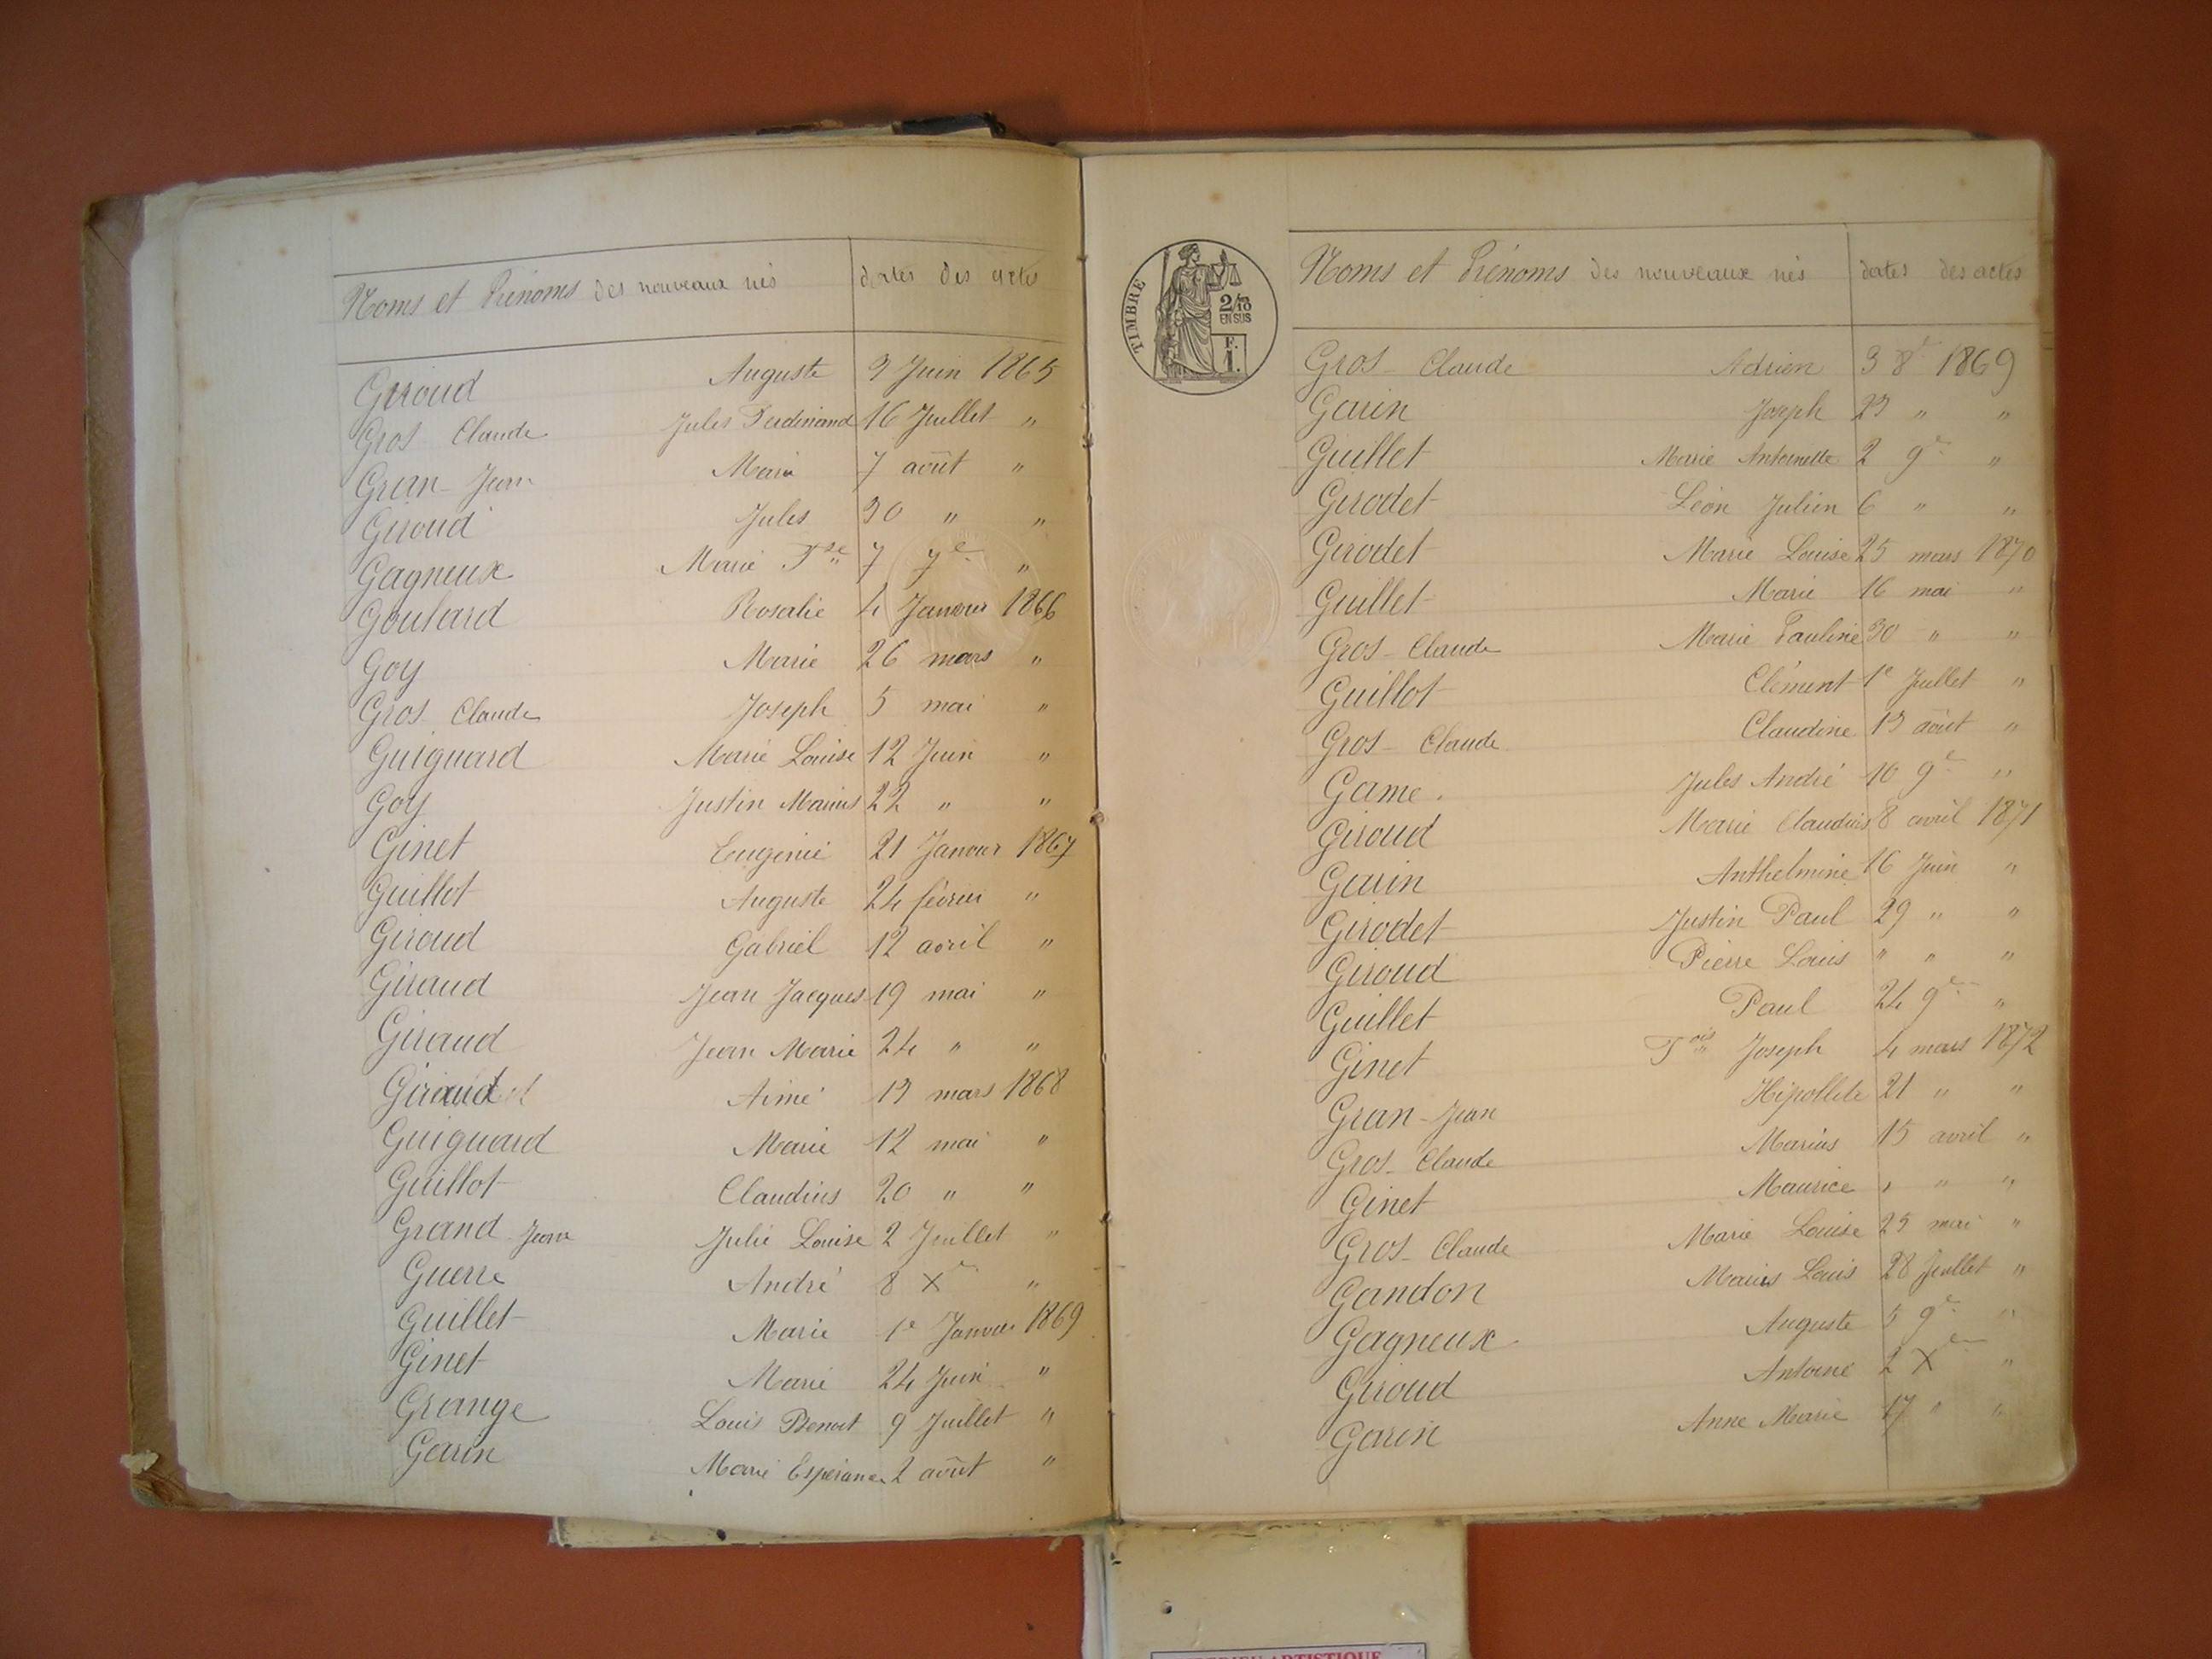 Noms et Prénoms des nouveaux nés dates des actes
Giroud Auguste 3 Juin 1865
Gros Claude Jules Ferdinand 16 Juillet "
Gran-Jean Marie 7 août "
Giroud Jules 30 " "
Gagneux Marie Fse 7 7e "
Goulard Rosalie 4 Janvier 1866
Goy Marie 26 mars "
Gros Claude Joseph 5 mai "
Guiguard Marie Louise 12 Juin "
Goy Justin Marius 22 " "
Ginet Eugénie 21 Janvier 1867
Guillot Auguste 24 février "
Giroud Gabriel 12 avril "
Giraud Jean Jacques 19 mai "
Giraud Jean Marie 24 " "
Aimé 13 mars 1868
Guiguard Marie 12 mai "
Guillot Claudius 20 " "
Grand Jean Julie Louise 2 Juillet "
Guerre André 8 Xe "
Guillet Marie 1e Janvier 1869
Ginet Marie 24 Juin "
Grange Louis Benoit 9 Juillet "
Garin Marie Espérance 2 août "
TIMBRE
2/10
EN SUS
F.
1.
Noms et Prénoms des nouveaux nés dates des actes
Gros-Claude Adrien 3 8e 1869
Garin Joseph 23 " "
Guillet Marie Antoinette 2 9e "
Girodet Léon Julien 6 " "
Girodet Marie Louise 25 mars 1870
Guillet Marie 16 mai "
Gros-Claude Marie Pauline 30 " "
Guillot Clément 1e Juillet "
Gros-Claude Claudine 13 août "
Game. Jules André 10 9e "
Giroud Marie Claudius 8 avril 1871
Garin Anthelmine 16 Juin "
Girodet Justin Paul 29 " "
Giroud Pierre Louis " " "
Guillet Paul 24 9e "
Ginet Fois Joseph 4 mars 1872
Gran-Jean Hipollite 21 " "
Gros-Claude Marius 15 avril "
Ginet Maurice " " "
Gros-Claude Marie Louise 25 mai "
Gandon Marius Louis 28 Juillet "
Gagneux Auguste 5 9e "
Giroud Antoine 2 Xe "
Garin Anne Marie 17 " "
ARTISTIQUE